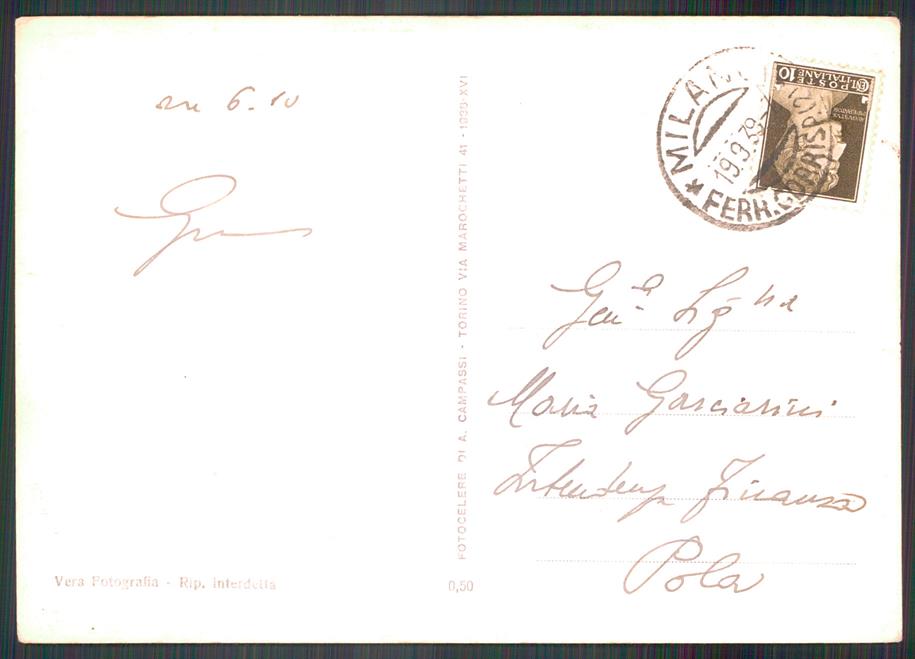 ore 6.10
MILANO
19.9.39
FERR. CORRISP.
CENT 10
POSTE
ITALIANE
FOTOCELERE DI A. CAMPASSI - TORINO VIA MAROCHETTI 41 - 1938-XVI
Gen.a Sig.na
Maria Garciarini
Intendenza Finanza
Pola
Vera Fotografia - Rip. interdetta
0,50